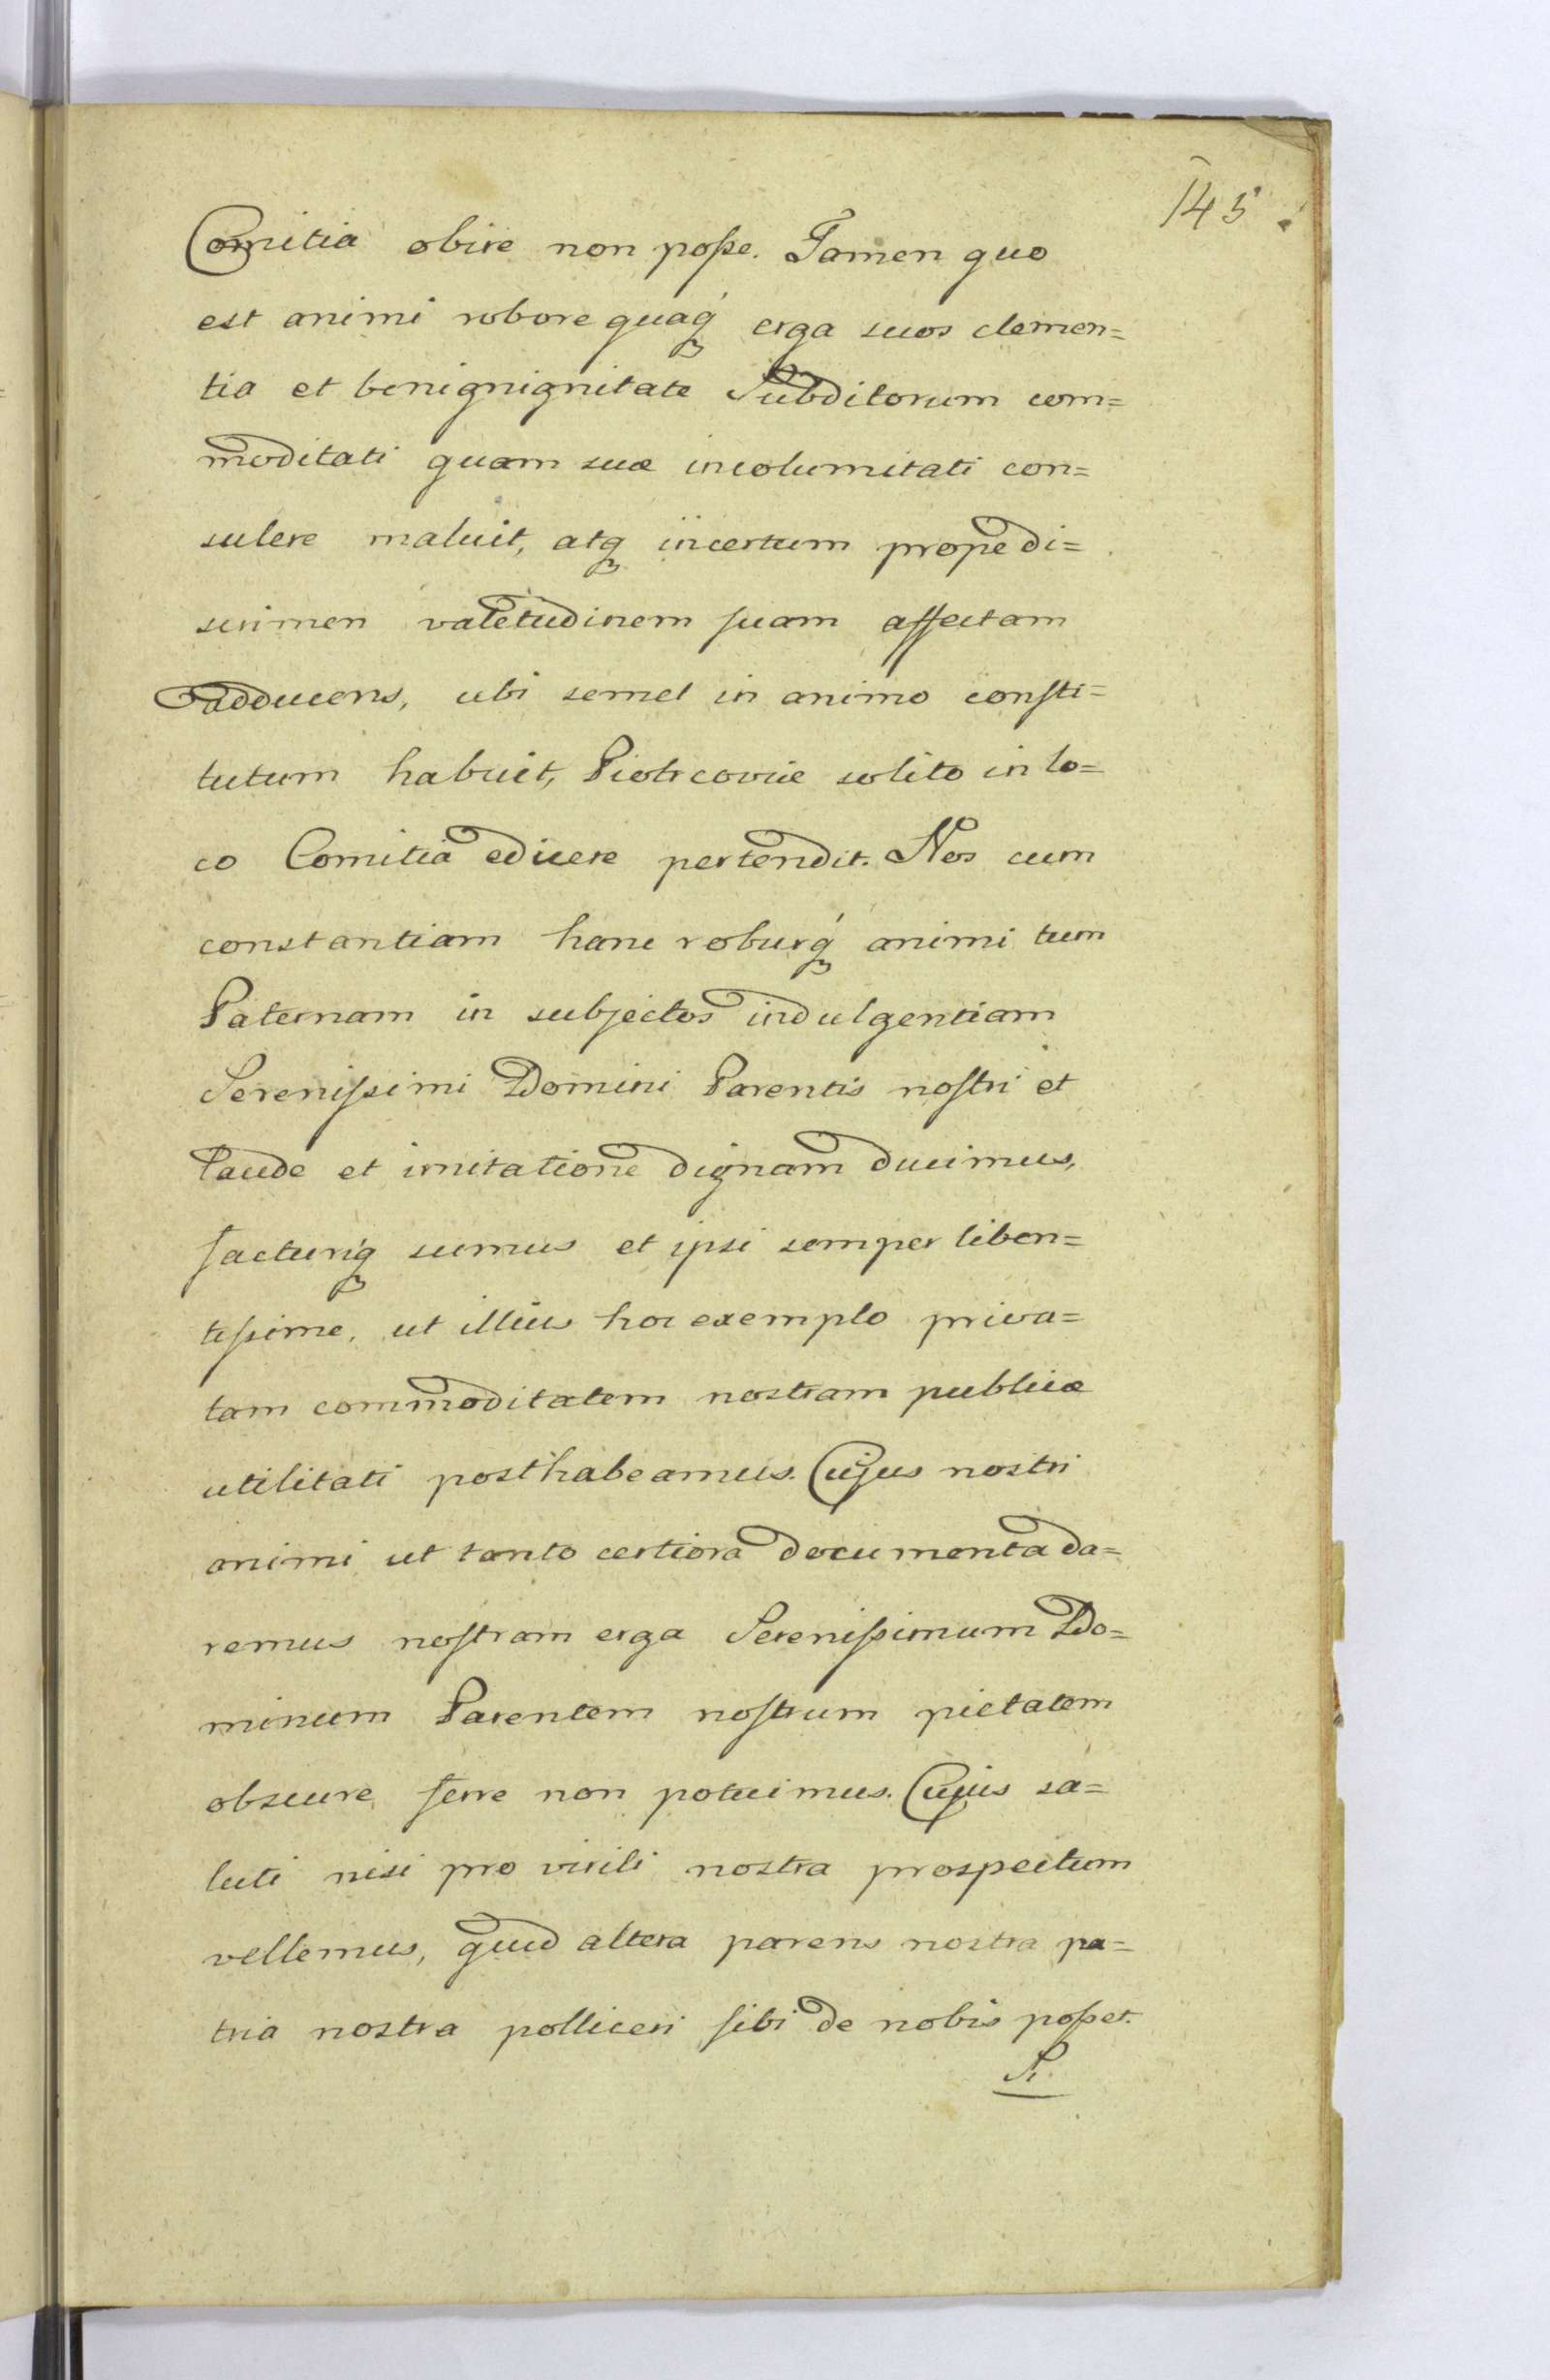 145.
Comitia obire non poſse. Tamen quo
est animi robore quaq́ꝫ erga suos clemen=
tia et benignignitate Subditorum com=
moditati quam suæ incolumitati con=
sulere maluit, atqꝫ incertum prope di=
scrimen valetudinem ſuam affectam
adducens, ubi semel in animo conſti=
tutum habuit, Piotrcoviæ solito in lo=
co Comitia edicere pertendit. Nos cum
constantiam hanc roburq́ꝫ animi tum
Paternam in subjectos indulgentiam
Sereniſsimi Domini Parentis noſtri et
laude et imitatione dignam ducimus,
facturiqꝫ sumus et ipsi semper liben=
tiſsime, ut illius hoc exemplo priva=
tam commoditatem nostram publicæ
utilitati posthabeamus. Cujus nostri
animi ut tanto certiora documenta da=
remus noſtram erga Sereniſsimum Do=
minum Parentem noſtrum pietatem
obscure ferre non potuimus. Cujus sa=
luti nisi pro virili nostra prospectum
vellemus, quid altera parens nostra pa=
tria nostra polliceri ſibi de nobis poſset.
Si